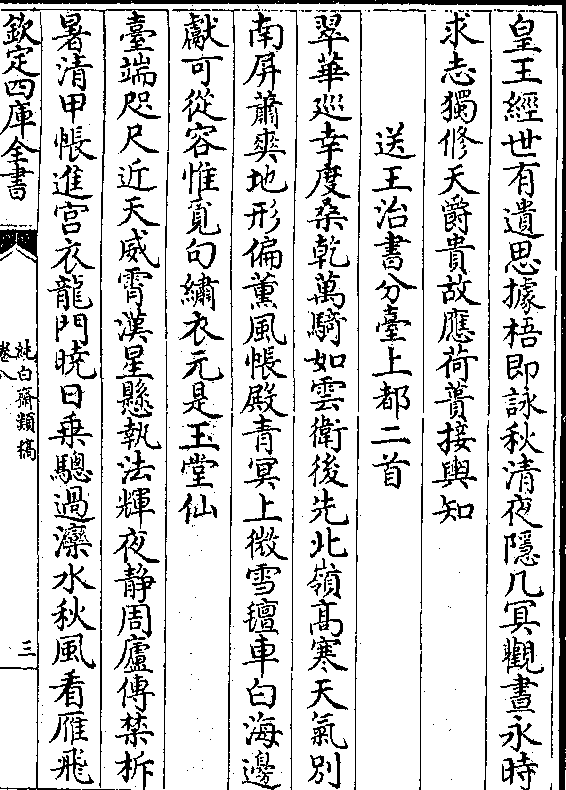 皇王經世有遺思據梧即詠秋清夜隱几冥觀晝永時
求志獨修天爵貴故應荷蕢接輿知
送王治書分臺上都二首
翠華巡幸度桑乾萬騎如雲衛後先北嶺高寒天氣別
南屏蕭爽地形偏薰風帳殿青冥上微雪氊車白海邊
獻可從容惟覓句繡衣元是玉堂仙
臺端咫尺近天威霄漢星懸執法輝夜静周廬傳禁柝
暑清甲帳進宮衣龍門曉日乗驄過灤水秋風看雁飛
欽定四庫全書
純白齋類稿
卷八
三